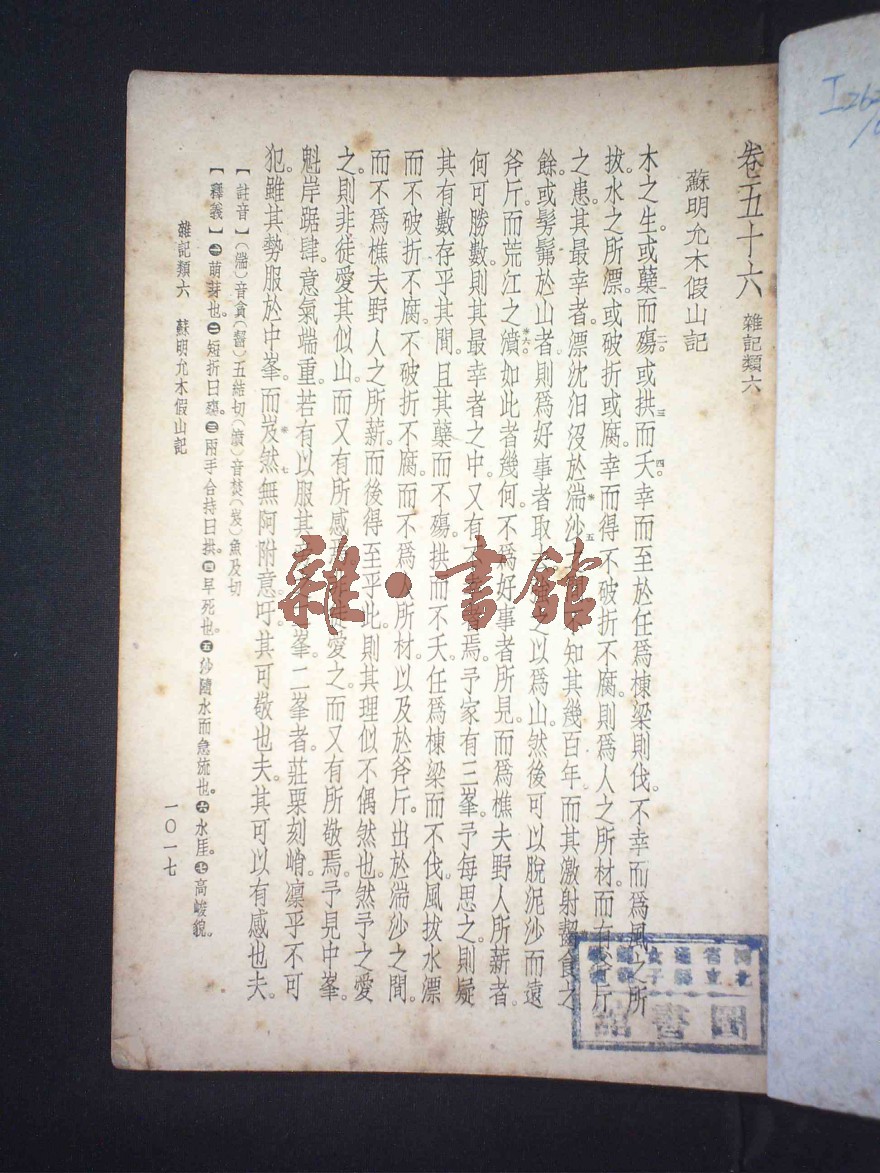 卷五十六 雜記類六
蘇明允木假山記
木之生。或蘖而殤。或拱而夭。幸而至於任爲棟梁則伐。不幸而爲風之所
拔。水之所漂。或破折或腐。幸而得不破折不腐。則爲人之所材。而有斧斤
之患。其最幸者。漂沈汩沒於湍沙 知其幾百年。而其激射齧食之
餘。或髣髴於山者。則爲好事者取 之以爲山。然後可以脫泥沙而遠
斧斤。而荒江之濆。如此者幾何。不爲好事者所見。而爲樵夫野人所薪者。
何可勝數。則其最幸者之中。又有 者焉。予家有三峯。予每思之。則疑
其有數存乎其間。且其蘖而不殤。拱而不夭。任爲棟梁而不伐。風拔水漂
而不破折不腐。不破折不腐。而不爲 所材。以及於斧斤。出於湍沙之間。
而不爲樵夫野人之所薪。而後得至乎此。則其理似不偶然也。然予之愛
之。則非徒愛其似山。而又有所感 愛之。而又有所敬焉。予見中峯。
魁岸踞肆。意氣端重。若有以服其 峯。二峯者。莊栗刻峭。凛乎不可
犯。雖其勢服於中峯。而岌然無阿附意。吁。其可敬也夫。其可以有感也夫。
【註音】(湍)音貪(齧)五結切(濆)音焚(岌)魚及切
【釋義】一萌芽也。二短折曰殤。三兩手合持曰拱。四早死也。五紗隨水而急流也。六水厓。七高峻貌。
雜記類六 蘇明允木假山記
一〇一七
雜·書館
圖書館